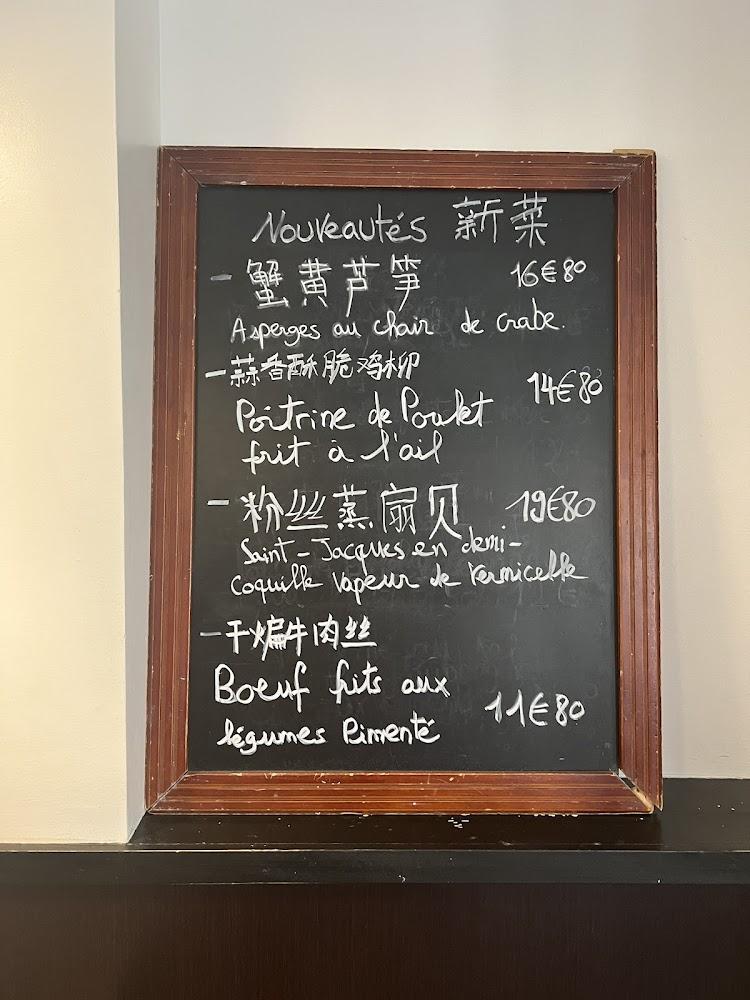 Nouveautés 新菜
- 蟹黄芦笋 16€80
Asperges au chair de crabe.
- 蒜香酥脆鸡柳 14€80
Poitrine de Poulet
frit à l'ail
- 粉丝蒸扇贝 19€80
Saint-Jacques en demi-
coquille vapeur de vermicelle
- 干煸牛肉丝
Boeuf frits aux
légumes Pimenté 11€80